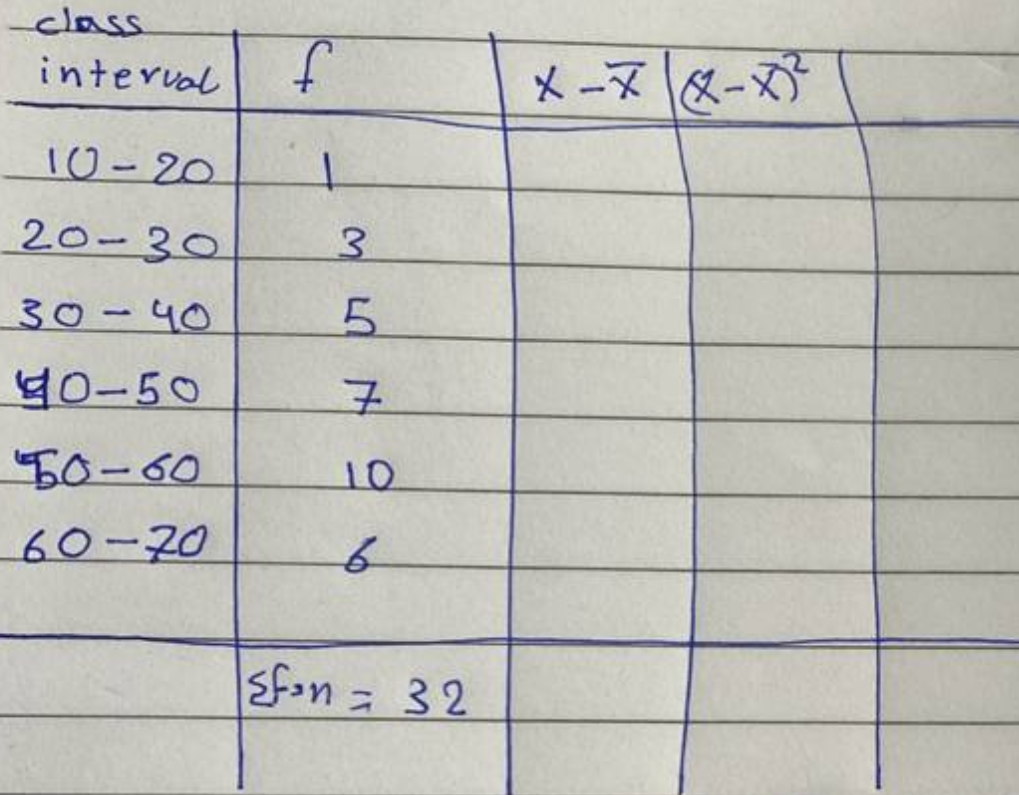 class
interval f x - x̄ (x - x̄)²
10-20 1
20-30 3
30-40 5
40-50 7
50-60 10
60-70 6
Σf=n = 32